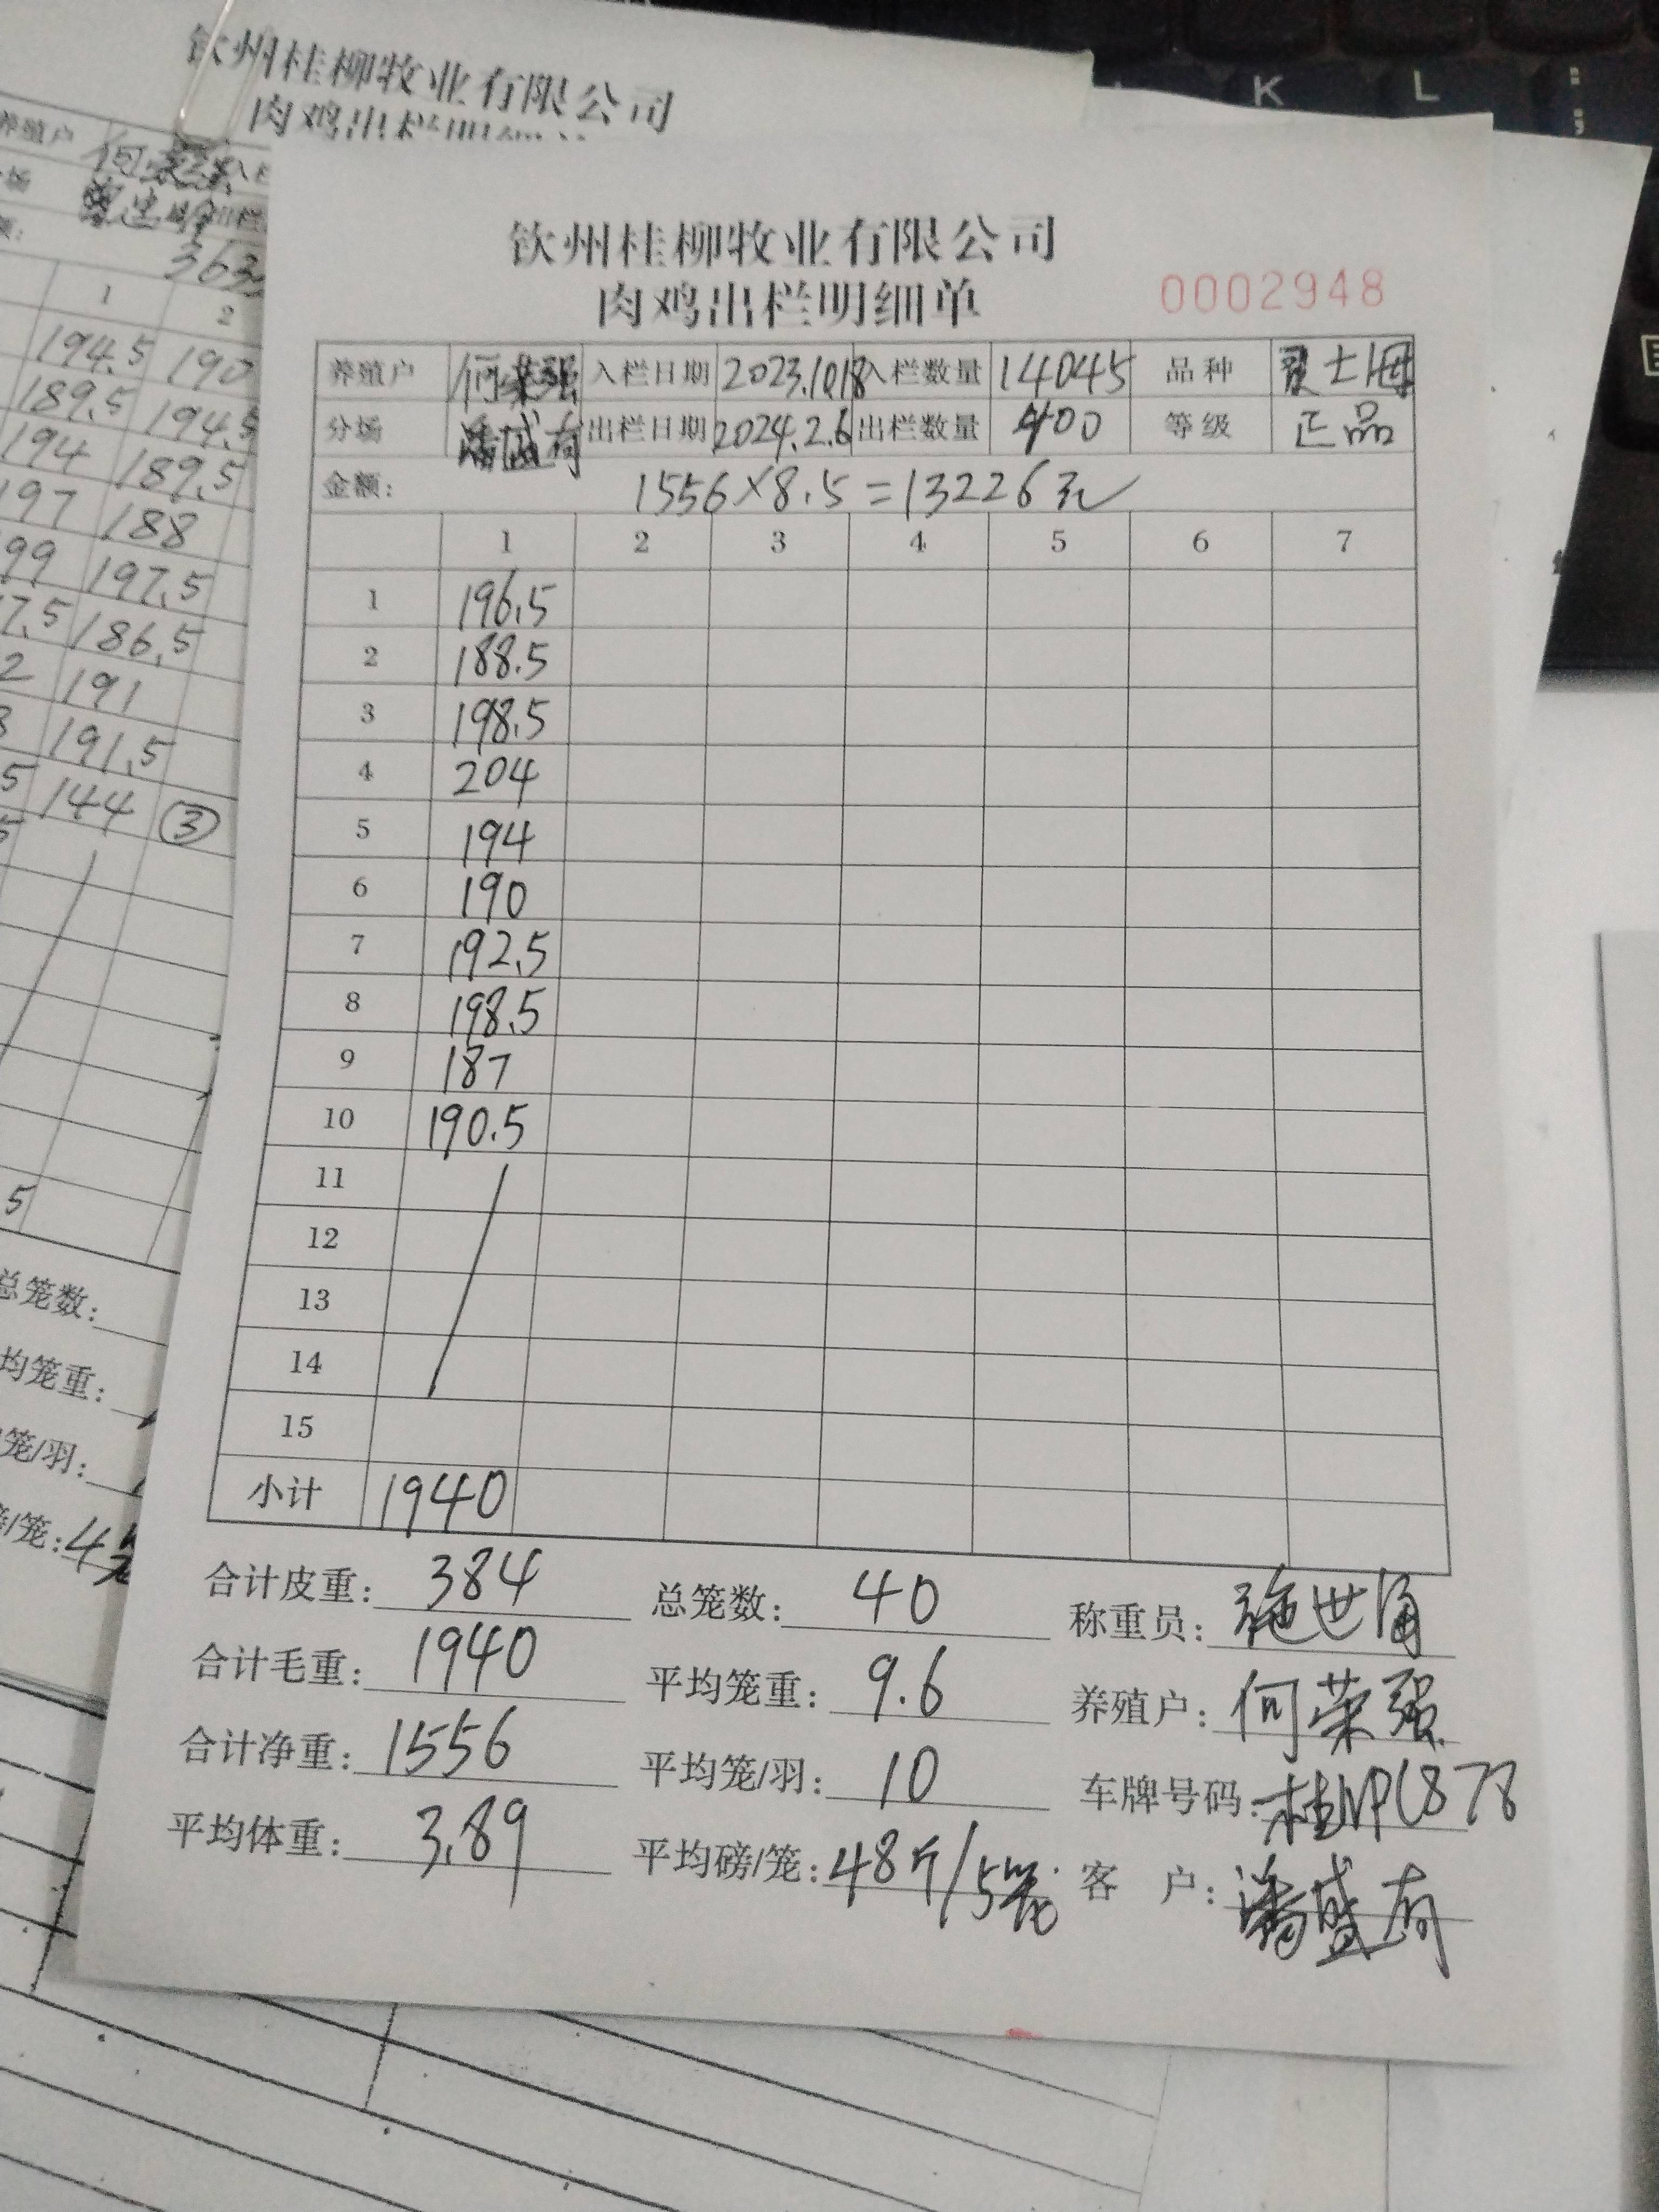 钦州桂柳牧业有限公司
养殖户
363
1 2
194.5 190
189.5 194.5
194 189.5
197 188
99 197.5
7.5 186.5
2 191
191.5
5 144 ③
5
总笼数:
均笼重:
笼/羽:
/笼:4
钦州桂柳牧业有限公司
肉鸡出栏明细单
0002948
养殖户 何荣强 入栏日期 2023.10.18 入栏数量 14045 品种
分场 潘盛有 出栏日期 2024.2.6 出栏数量 400 等级 正品
金额: 1556×8.5=13226元
1 2 3 4 5 6 7
1 196.5
2 188.5
3 198.5
4 204
5 194
6 190
7 192.5
8 198.5
9 187
10 190.5
11
12
13
14
15
小计 1940
合计皮重: 384 总笼数: 40 称重员:
合计毛重: 1940 平均笼重: 9.6 养殖户: 何荣强
合计净重: 1556 平均笼/羽: 10 车牌号码:
平均体重: 3.89 平均磅/笼: 48斤/5笼 客 户: 潘盛有
K L